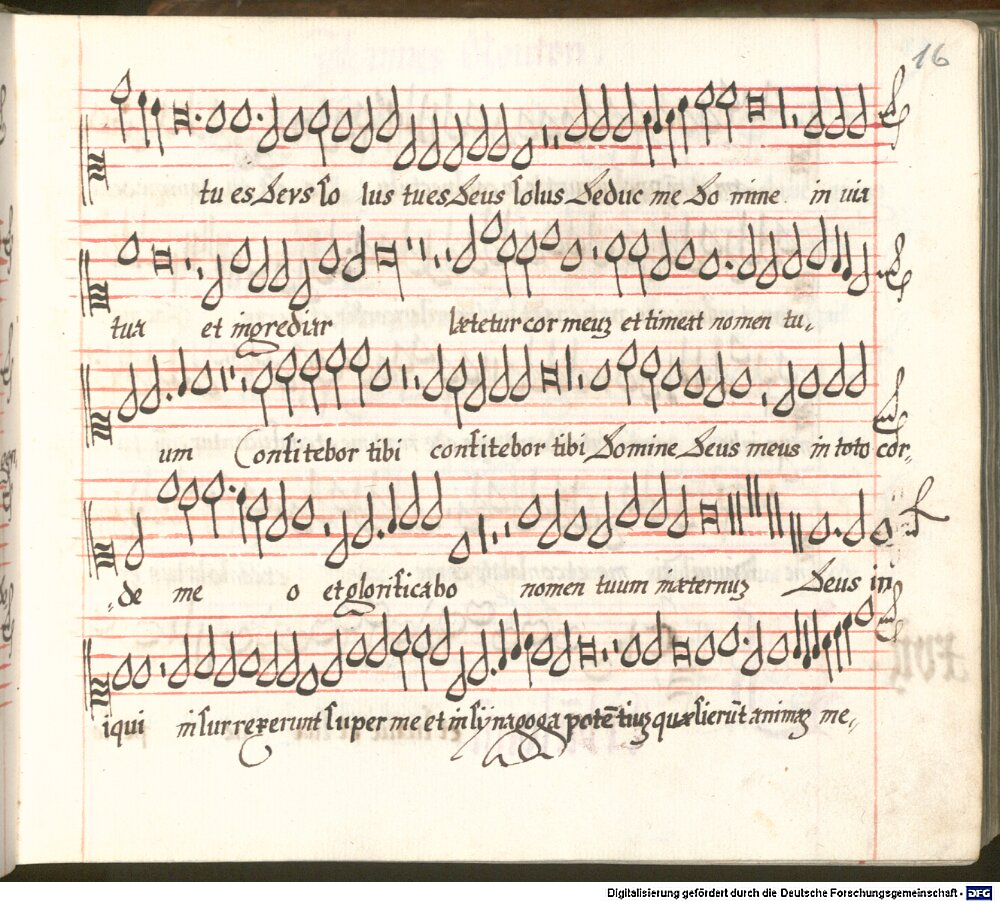 16
tu es Deus so lus tu es Deus solus Deduc me Do mine in via
tua et ingrediar lætetur cor meuʒ et timeat nomen tu-
um Confitebor tibi confitebor tibi Domine Deus meus in toto cor-
-de me o et glorificabo nomen tuum in æternuʒ Deus in
iqui insurrexerunt super me et in sÿnagoga potẽtiuʒ quæsierũt animaʒ me-
Digitalisierung gefördert durch die Deutsche Forschungsgemeinschaft - DFG